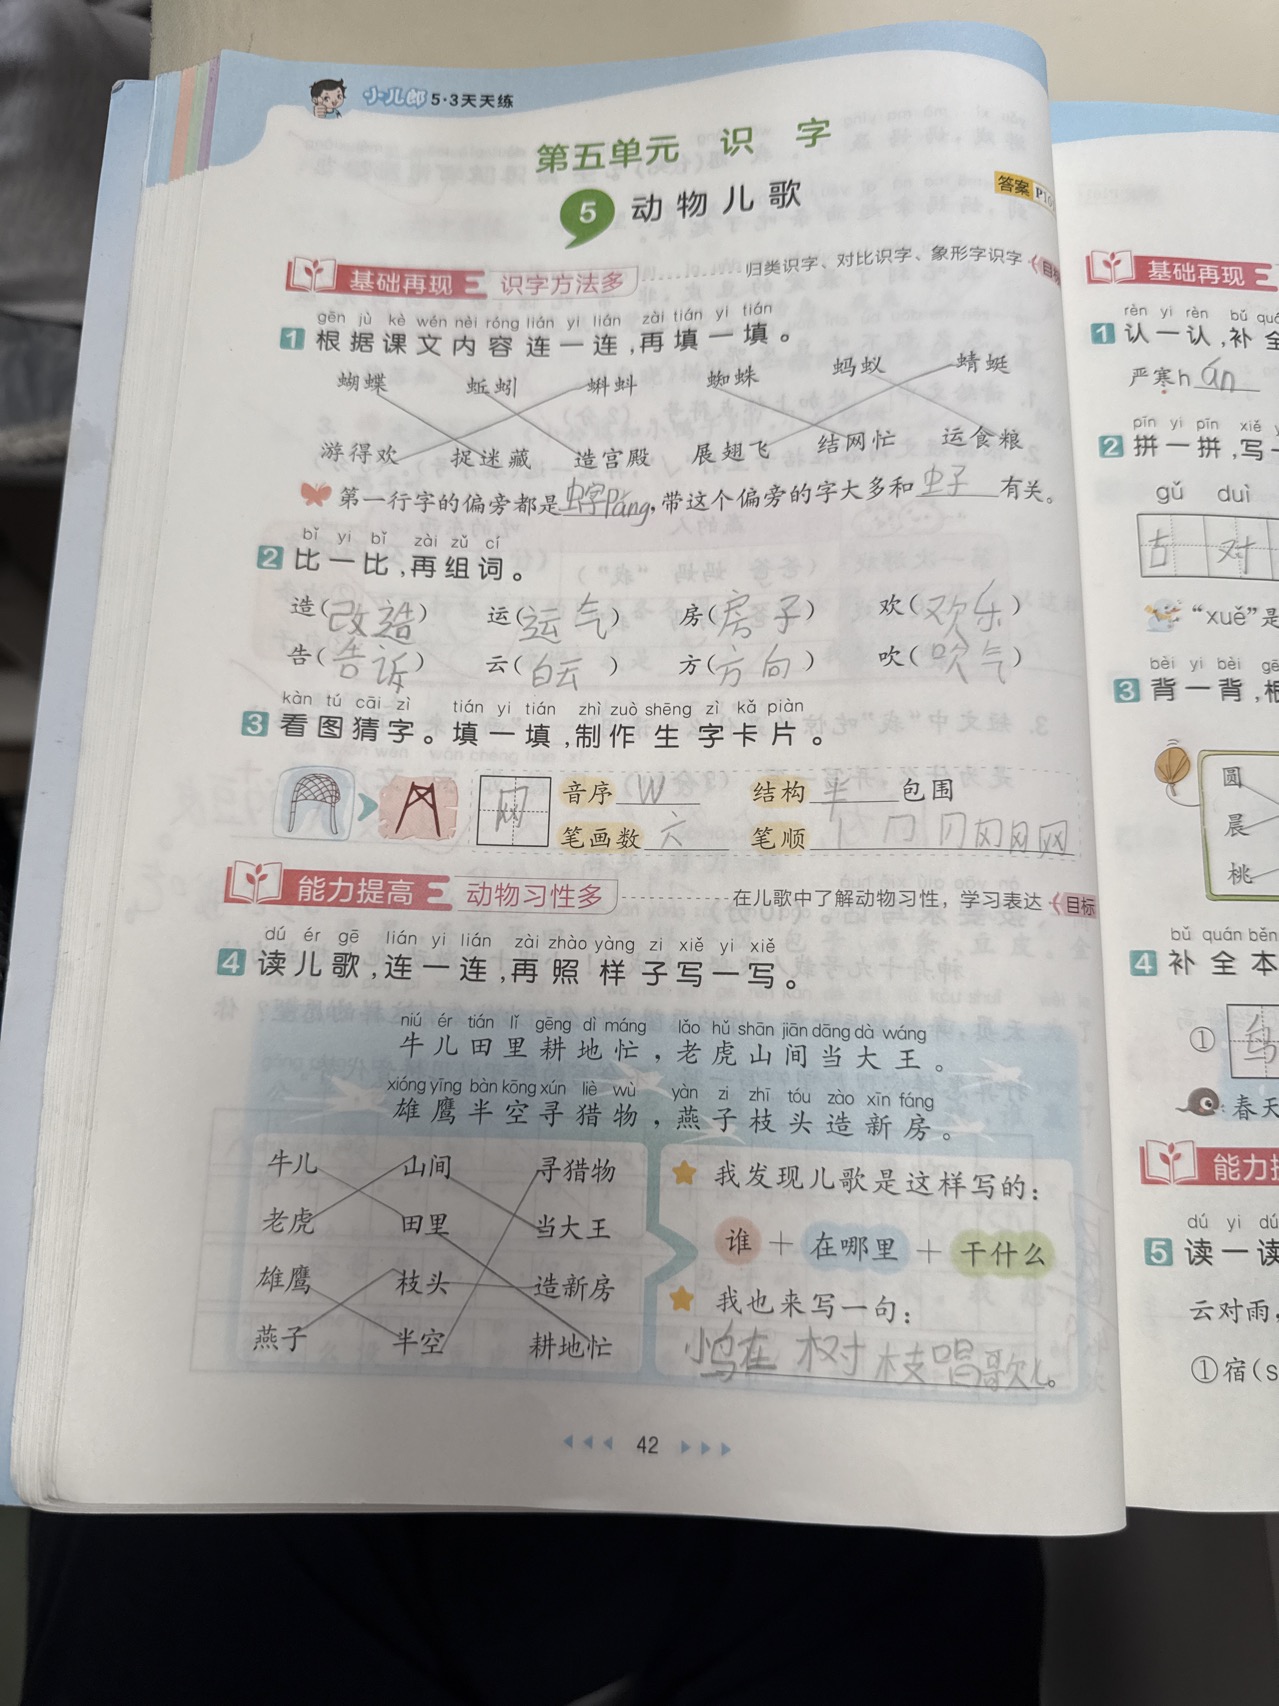 小儿郎 5·3天天练
第五单元 识 字
5 动物儿歌
答案 P10
基础再现 识字方法多 归类识字、对比识字、象形字识字 目标
gēn jù kè wén nèi róng lián yi lián zài tián yi tián
1 根据课文内容连一连,再填一填。
蝴蝶 蚯蚓 蝌蚪 蜘蛛 蚂蚁 蜻蜓
游得欢 捉迷藏 造宫殿 展翅飞 结网忙 运食粮
第一行字的偏旁都是虫字páng,带这个偏旁的字大多和虫子有关。
bǐ yi bǐ zài zǔ cí
2 比一比,再组词。
造(改造) 运(运气) 房(房子) 欢(欢乐)
告(告诉) 云(白云) 方(方向) 吹(吹气)
kàn tú cāi zì tián yi tián zhì zuò shēng zì kǎ piàn
3 看图猜字。填一填,制作生字卡片。
网 音序 W 结构 半 包围
笔画数 六 笔顺 丨 冂 冈 网
能力提高 动物习性多 在儿歌中了解动物习性，学习表达 目标
dú ér gē lián yi lián zài zhào yàng zi xiě yi xiě
4 读儿歌,连一连,再照样子写一写。
niú ér tián lǐ gēng dì máng lǎo hǔ shān jiān dāng dà wáng
牛儿田里耕地忙，老虎山间当大王。
xióng yīng bàn kōng xún liè wù yàn zi zhī tóu zào xīn fáng
雄鹰半空寻猎物，燕子枝头造新房。
牛儿 山间 寻猎物
老虎 田里 当大王
雄鹰 枝头 造新房
燕子 半空 耕地忙
我发现儿歌是这样写的：
谁 + 在哪里 + 干什么
我也来写一句：
小鸟在树枝唱歌。
42
基础再现
rèn yi rèn bǔ
1 认一认,补全
严寒hán
pīn yi pīn xiě
2 拼一拼,写一
gǔ duì
古 对
“xuě”是
bèi yi bèi
3 背一背,根
圆
晨
桃
bǔ quán běn
4 补全本
① 鸟
春天
能力提
dú yi dú
5 读一读
云对雨，
①宿(s